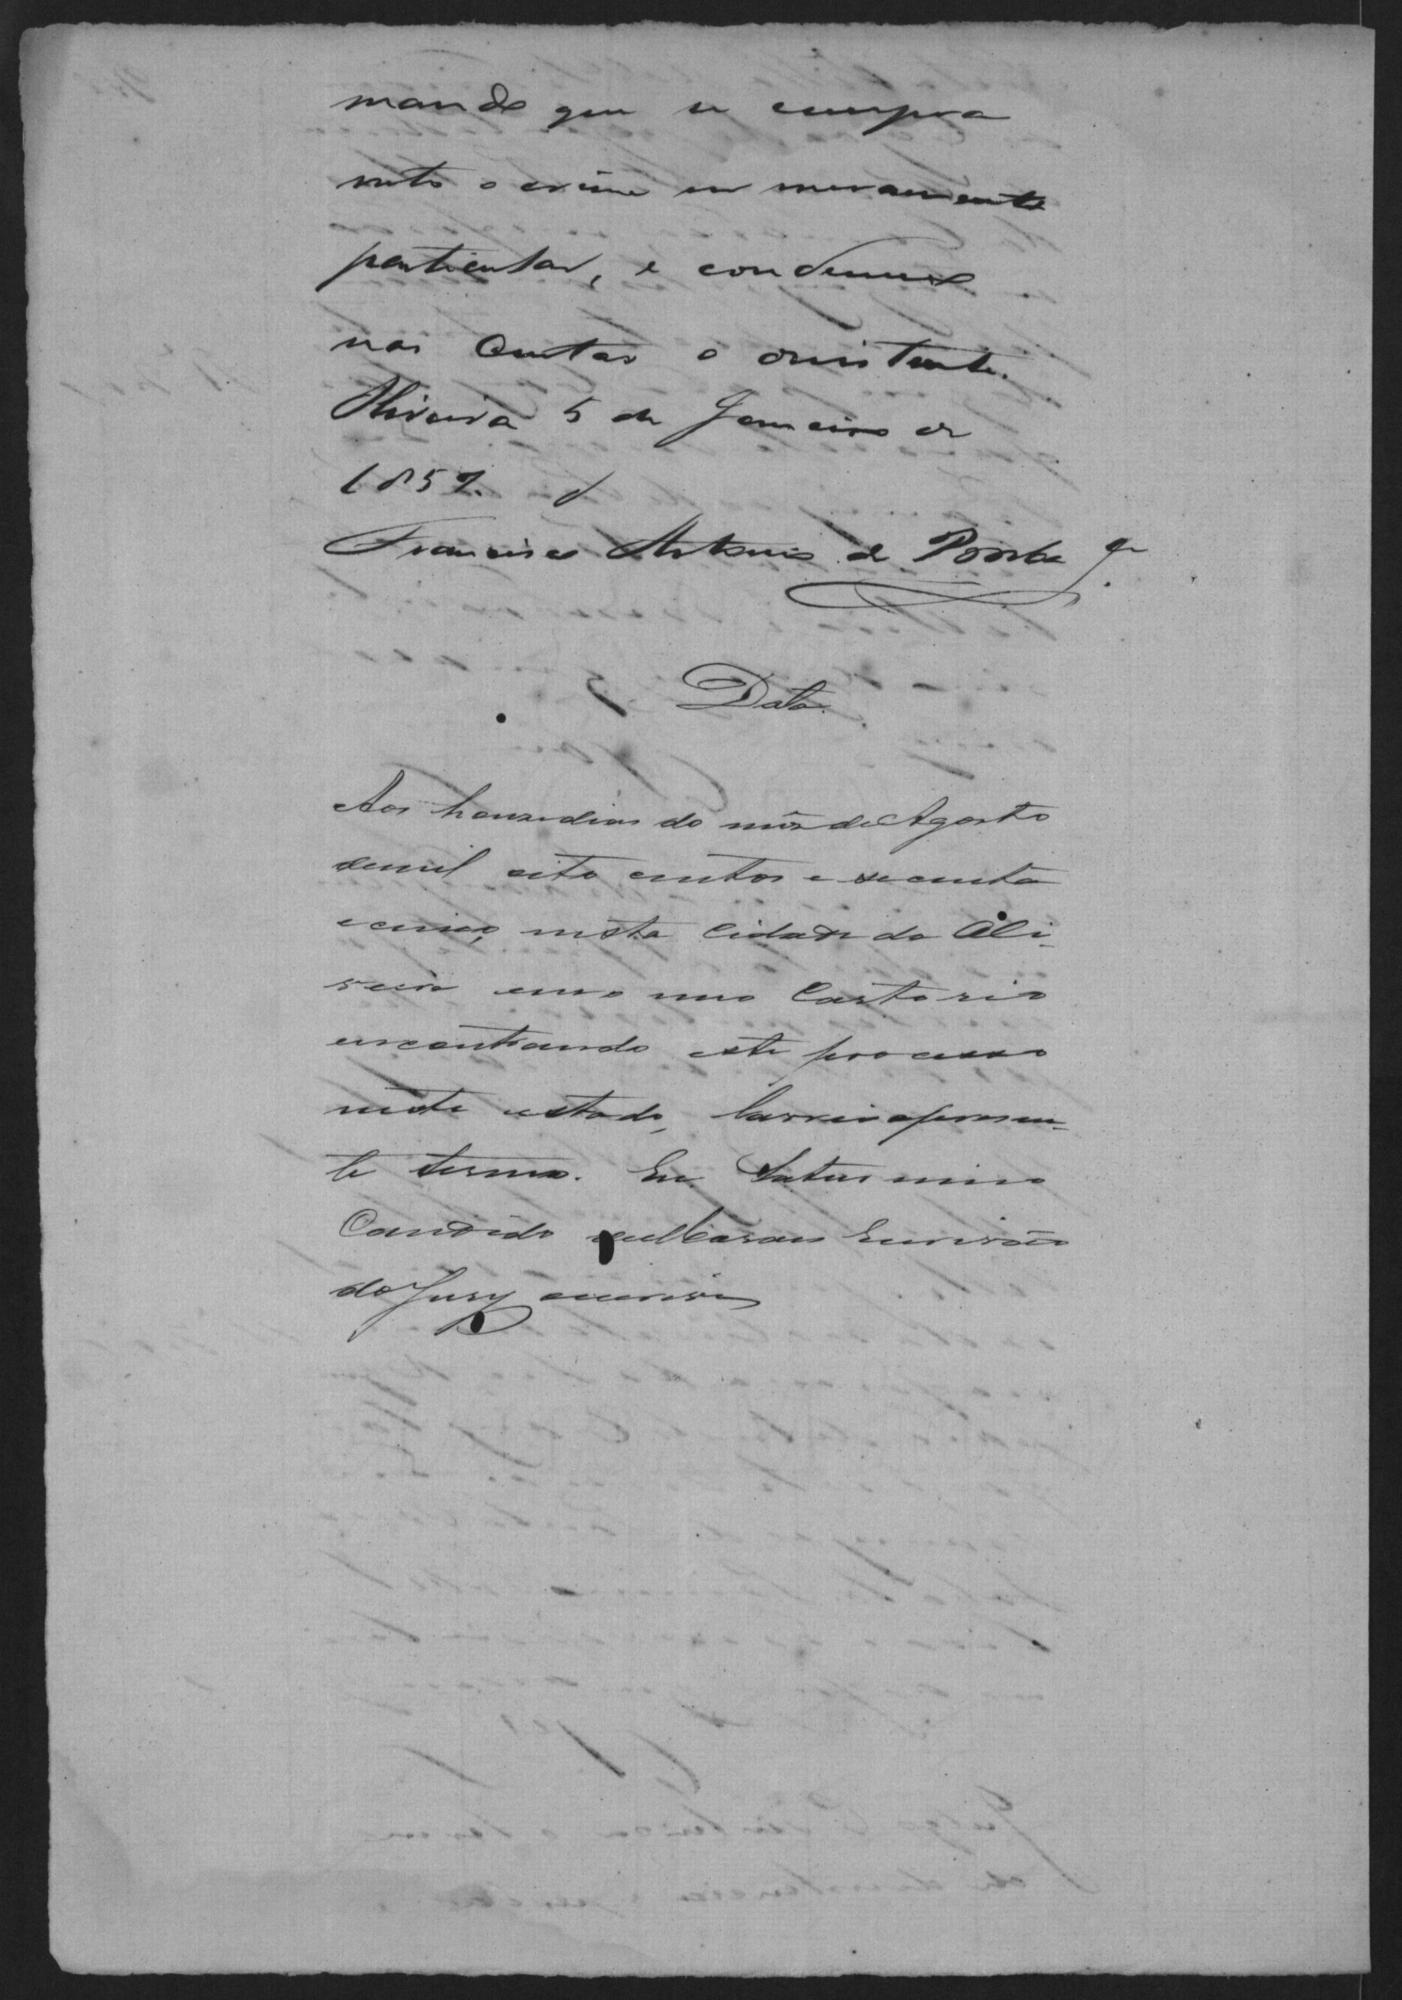 mando que se cumpra
visto o crime ser meramente
particular, e condemno
nas Custas o desistente.
Oliveira 5 de Janeiro de
1857.
Francisco Antonio de
Data.
Aos honze dias do mês de Agosto
demil oito centos e secenta
e cinco, nesta Cidade da Oli-
veira em o meu Cartorio
encontrando este processo
neste estado, lavrei o presen-
te termo. Eu Saturnino
Candido Escrivão
do Jury escrevi